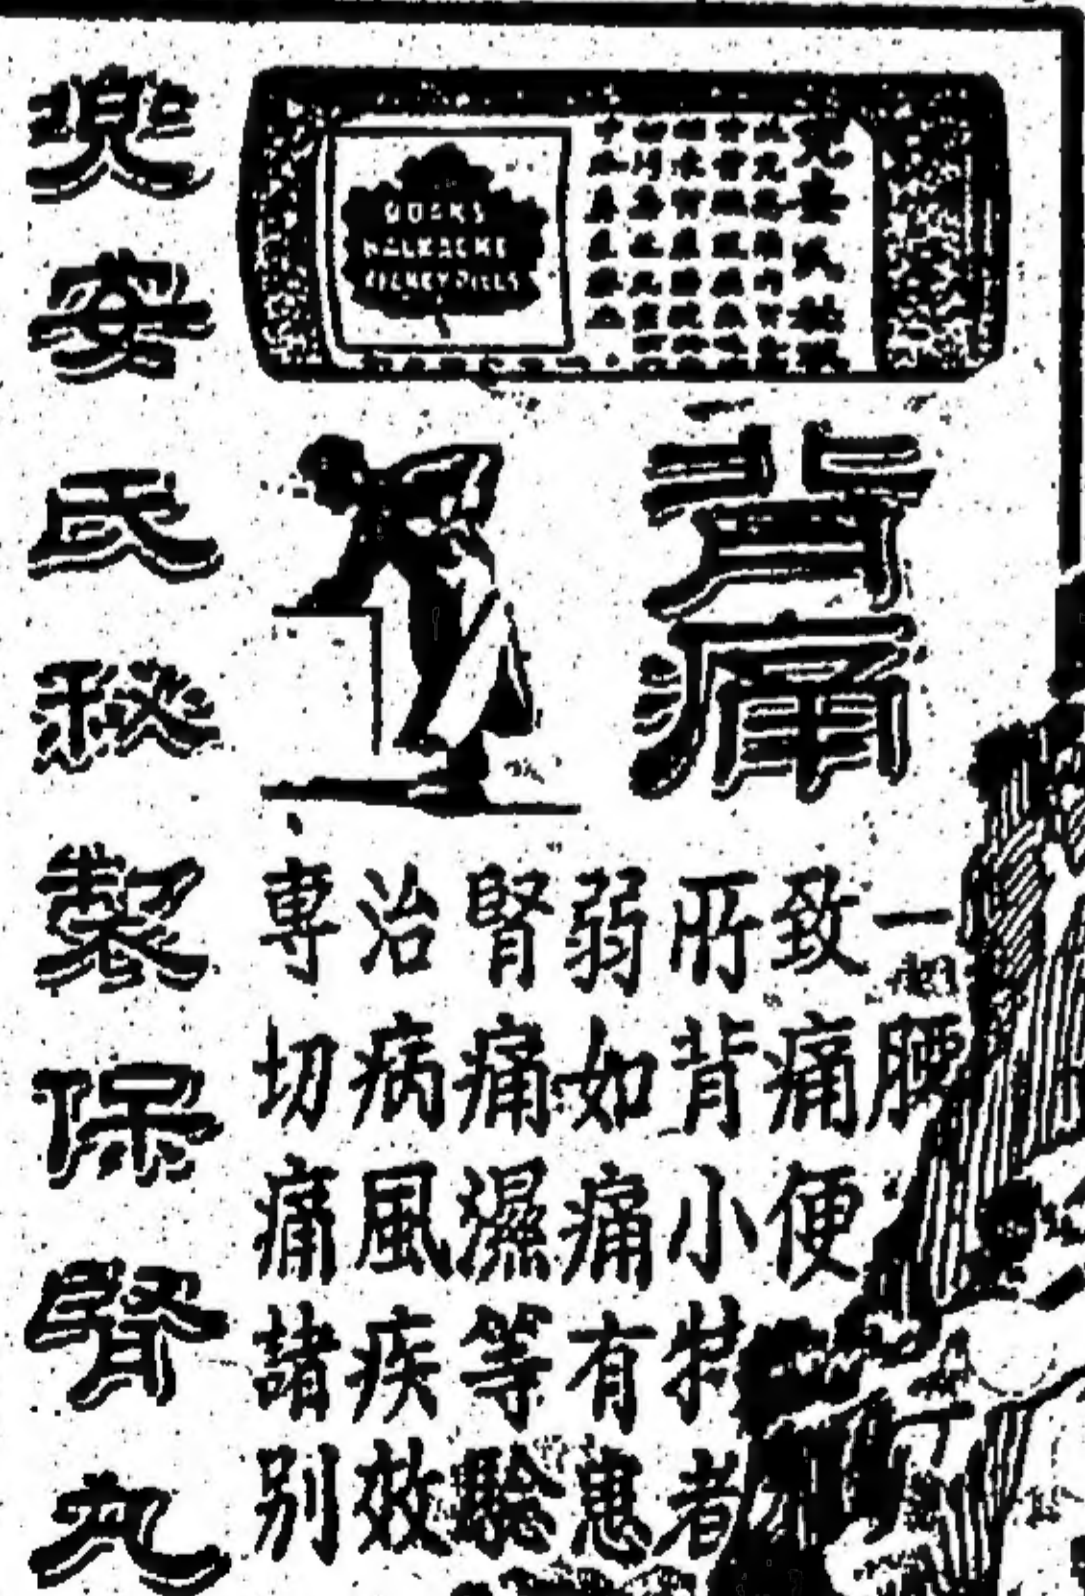 兜安氏秘製保腎丸
DOANS
BACKACHE
KIDNEY PILLS
背痛
專治腎弱所致一
切病痛如背痛腰
痛風濕痛小便
諸疾等有特
別效驗患者